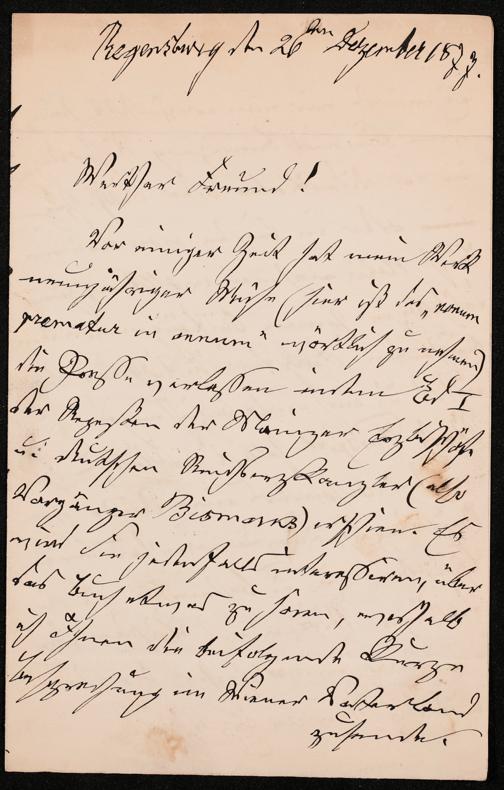 Regensburg den 26ten Dezember 1877.
Werther Freund!
Vor einiger Zeit hat mein Werk
neunjähriger Mühe (hier ist das „nonum
prematur in annum“ wörtlich zu nehmen)
die Presse verlassen indem Bd I
der Regesten der Mainzer Erzbischöfe
u: deutschen Reichserzkanzler (also
Vorgänger Bismarks) erschien. Es
wird Sie jedenfalls interessiren, über
das Buch etwas zu hören, weshalb
ich Ihnen die beifolgende kurze
Besprechung im Wiener Vaterland
zusende.